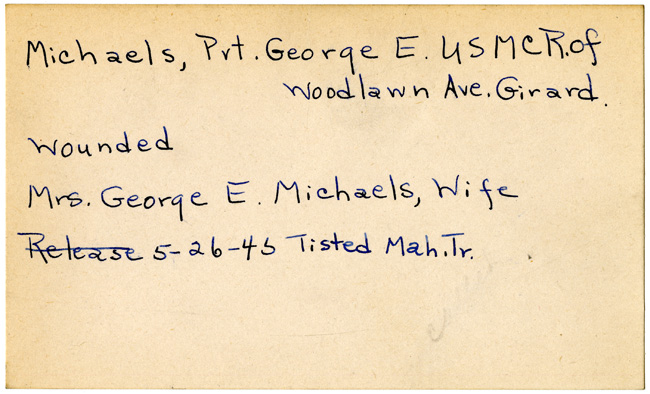 Michaels, Pvt. George E. USMCR. of
Woodlawn Ave. Girard.
Wounded
Mrs. George E. Michaels, Wife
Release 5-26-45 Tisted Mah. Tr.